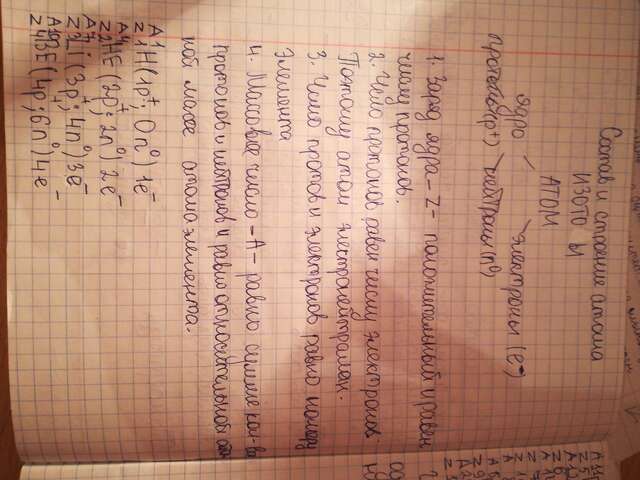 Состав и строение атома
ИЗОТО Ы
АТОМ
ядро электроны (e⁻)
протоны (p+) нейтроны (n⁰)
1. Заряд ядра - Z - положительный и равен
числу протонов.
2. Число протонов равен числу электронов.
Поэтому атом электронейтрален.
3. Число протов и электронов равно номеру
элемента
4. Массовое число - А - равно сумме кол-ва
протонов и нейтронов и равно относительной
ной массе атома элемента.
A 1
Z 1 H (1p⁺; 0n⁰) 1e⁻
A 4
Z 2 HE (2p⁺; 2n⁰) 2e⁻
A 7
Z 3 Li (3p⁺; 4n⁰) 3e⁻
Z 4 BE (4p⁺; 6n⁰) 4e⁻